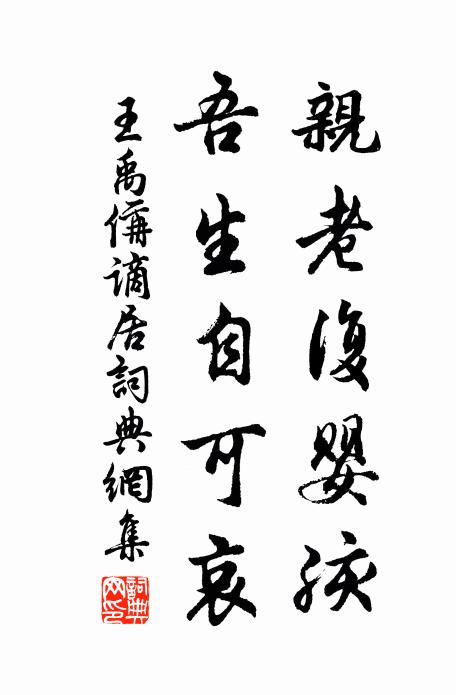 親老復嬰孩
吾生自可哀
王禹偁謫居詞典網集
詞典網印